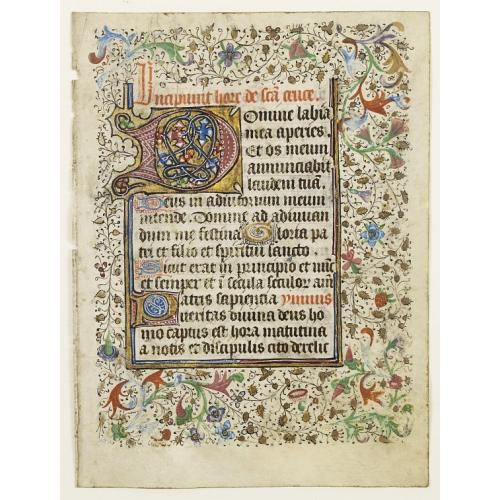 Incipiunt hore de scā cruce.
Domine labia
mea aperies.
Et os meum
annunciabit
laudem tuā.
Deus in adiutorium meum
intende. Domine ad adiuuan
dum me festina Gloria pa
tri et filio et spiritui sancto.
Sicut erat in principio et nūc
et semper et ī secula seculor amē
Patris sapientia ymnus
ueritas diuina deus ho
mo captus est hora matutina
a notis et discipulis cito derelic